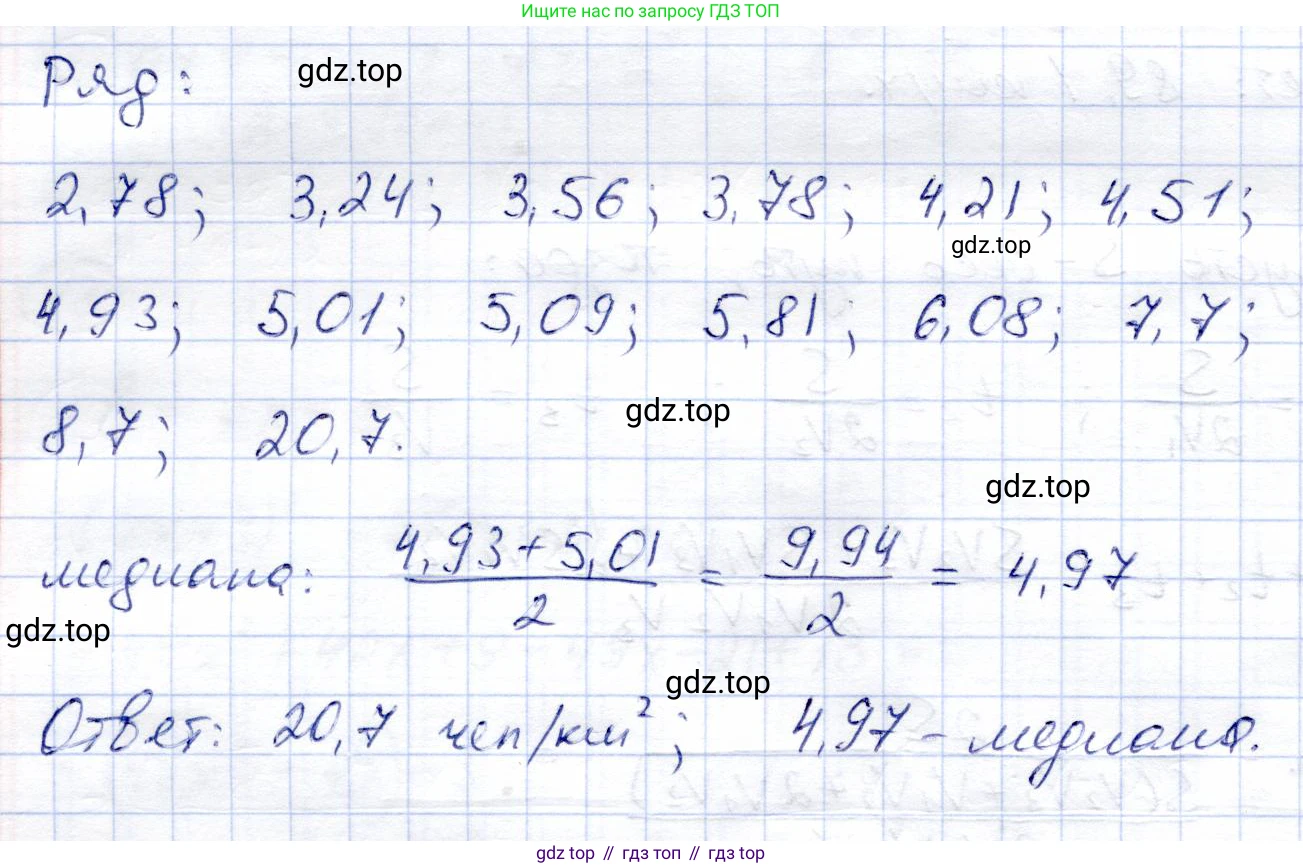 Ищите нас по запросу ГДЗ ТОП
Ряд:
gdz.top
2,78; 3,24; 3,56; 3,78; 4,21; 4,51;
gdz.top
4,93; 5,01; 5,09; 5,81; 6,08; 7,7;
gdz.top
8,7; 20,7.
gdz.top
медиана: (4,93+5,01)/2 = 9,94/2 = 4,97
gdz.top
gdz.top
Ответ: 20,7 чел/км²; 4,97 - медиана.
gdz top // гдз топ // gdz top